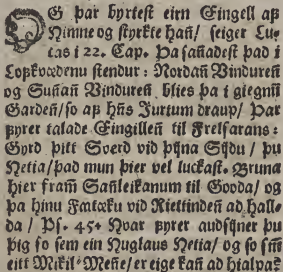 OG þar byrtest eirn Eingell aß
Himne og styrkte hañ/ seiger Lu-
cas i 22. Cap. Þa sañadest þad i
Loßkvædenu stendur: Nordañ Vindureñ
og Suñañ Vindureñ blies þa i giegnũ
Gardeñ/so aß hñs Jurtum draup/ Þar
ßyrer talade Eingilleñ til Frelsarans:
Gyrd þitt Sverd vid þijna Sijdu / þu
Hetia/þad mun þier vel luckast. Bruna
hier fram Sañleikanum til Gooda/ og
þa hinu Fatæku vid Riettinden ad hall-
da / Ps. 45. Hvar ßyrer audsijner þu
þig so sem ein Huglaus Hetia/ og so sm̃
eitt Mikil-Meñe/er eige kañ ad hialpa?